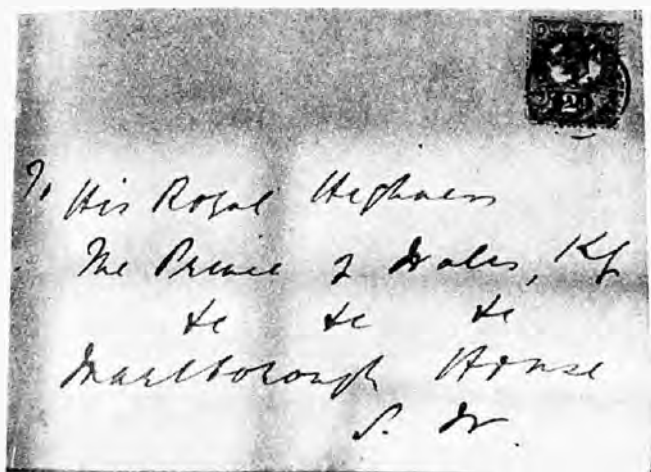 2d
To His Royal Highness
The Prince of Wales, KG
&c &c &c
Marlborough House
S. W.